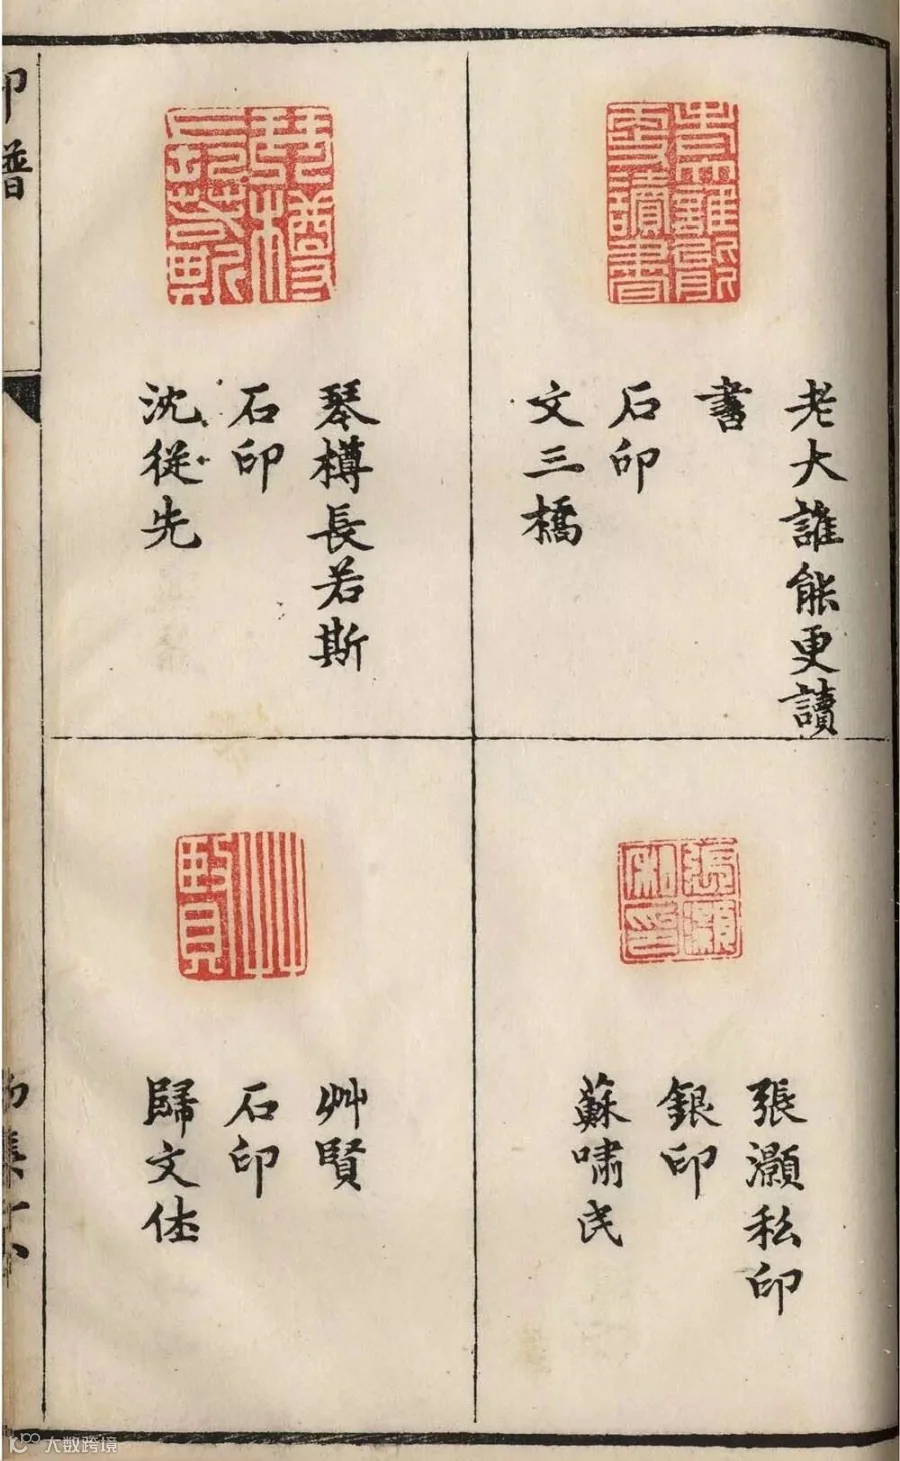 老大誰能更讀
書
石印
文三橋
琴樽長若斯
石印
沈從先
張灝私印
銀印
蘇嘯民
艸賢
石印
歸文休
印譜
大数跨境